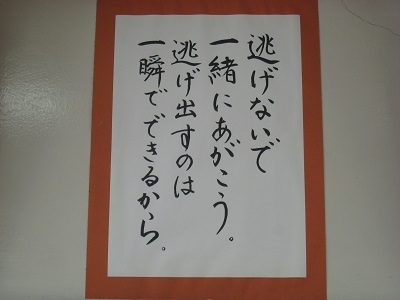 逃げないで
一緒にあがこう。
逃げ出すのは
一瞬でできるから。